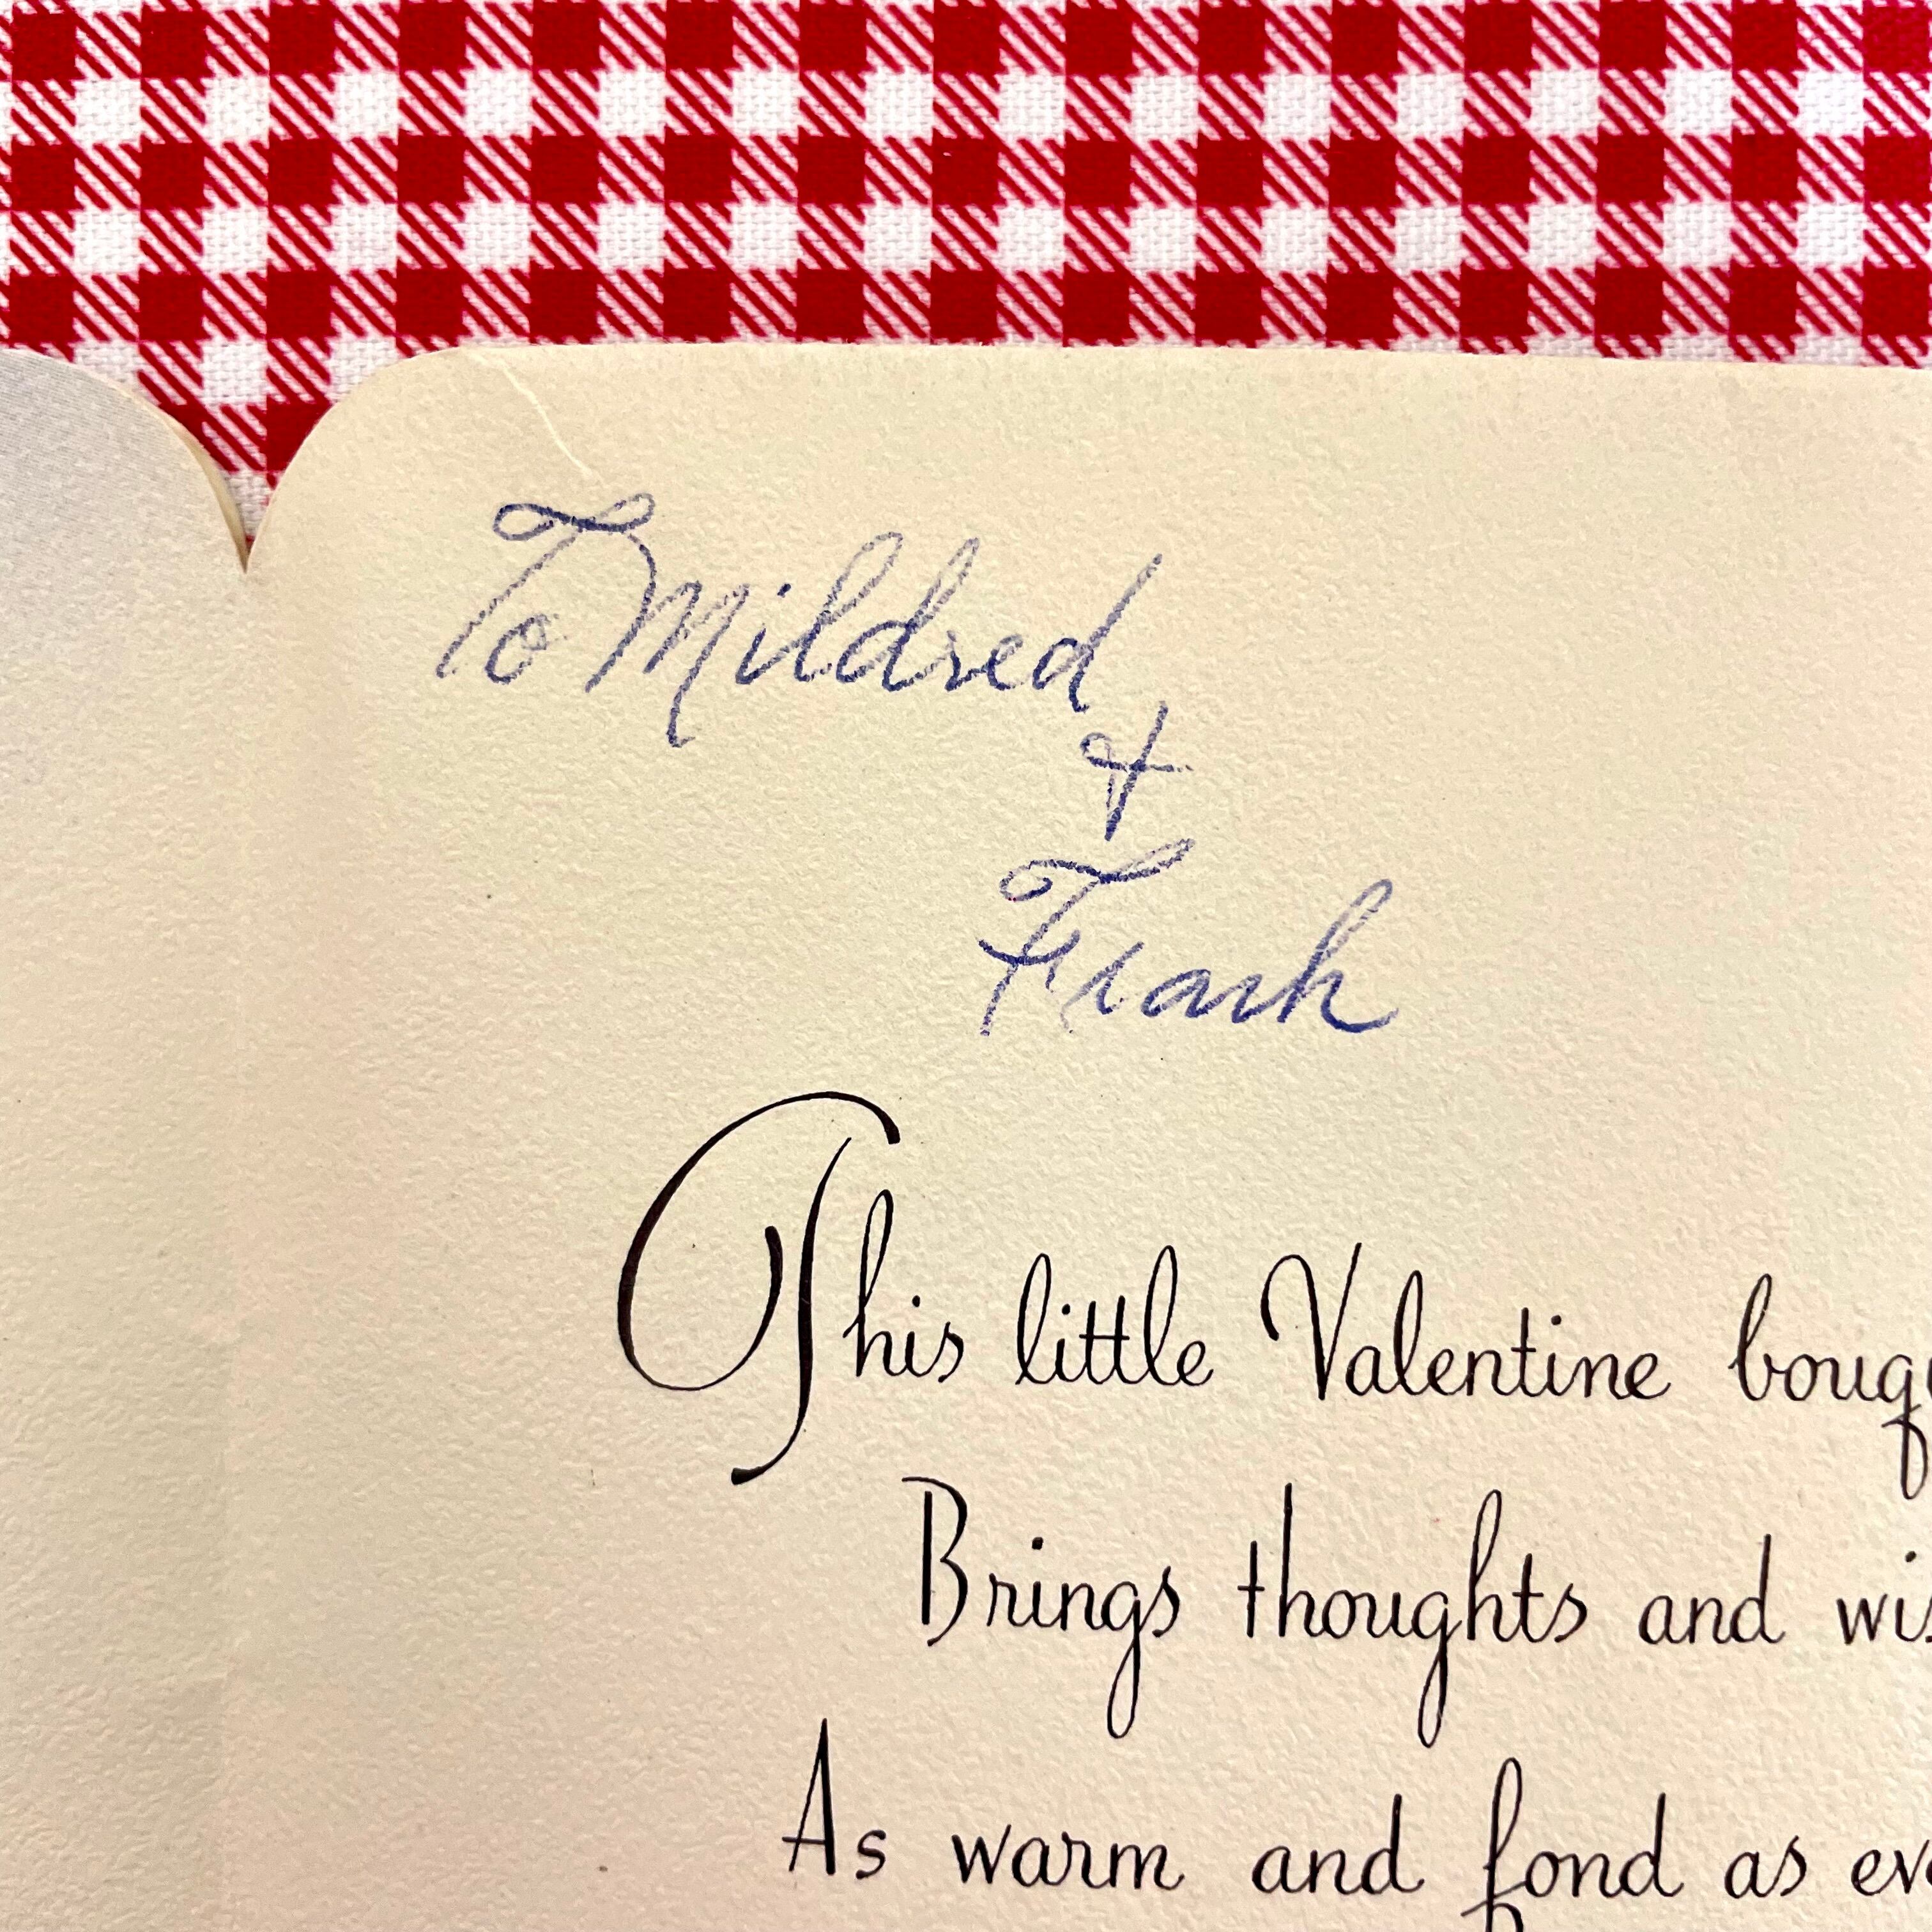 To Mildred
&
Frank
This little Valentine bouq
Brings thoughts and wis
As warm and fond as eve